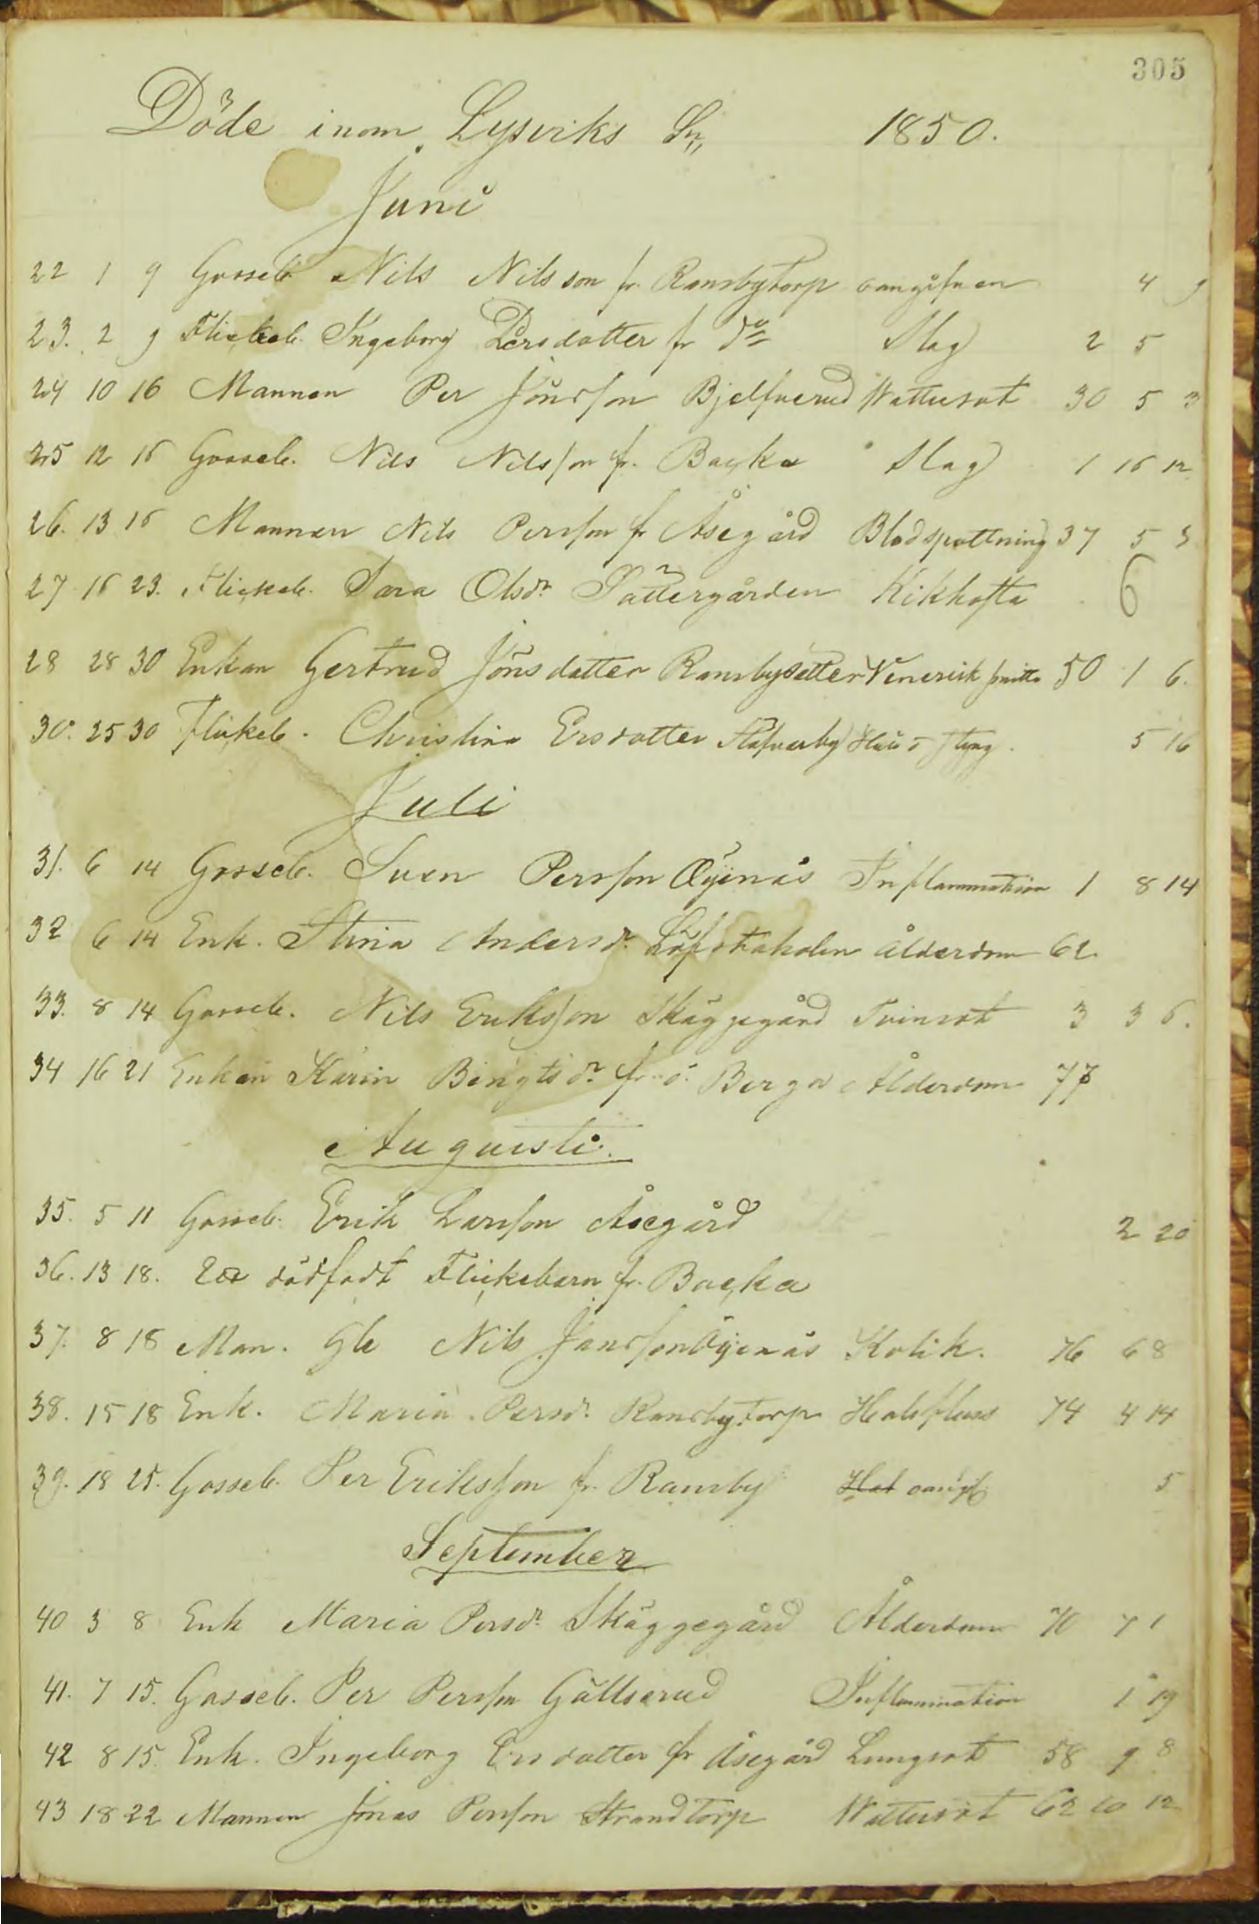 305
Döde inom Lysviks Sn,, 1850.
Juni
22 1 9 Gosseb Nils Nilsson fr. Ransbytorp oangifven 4 9
23. 2 9 Flickeb. Ingeborg Persdotter fr do Slag 2 5
24 10 16 Mannen Per Jönsson Bjelfverud Wattusot 30 5 3
25 12 16 Gosseb. Nils Nilsson fr. Backa Slag 1 16 12
26. 13 16 Mannen Nils Persson fr Åsegård Blodspottning 37 5 3
27 16 23. Flickeb. Sara Olsdr Sättergården Kikhosta 6
28 28 30 Enkan Gertrud Jönsdotter Ransbysetter Venerisk smitta 50 1 6.
30. 25 30 Flickeb. Christina Ersdotter Stafverby Håll o styng. 5 16
Juli
31. 6 14 Gosseb. Sven Persson Öijenäs Inflammation 1 8 14
32 6 14 Enk. Stina Andersdr Löfstaholm ålderdom 62.
33. 8 14 Gosseb. Nils Eriksson Skäggegård Tvinsot 3 3 6.
34 16 21 Enkan Karin Bengtsdr fr ö. Berga Ålderdom 77
Augusti.
35. 5 11 Gosseb. Erik Larsson Åsegård 2 20
36. 13 18. Ett dödfödt Flickebarn fr. Backa
37. 8 18 Man. Gle Nils Jansson Öijenäs Kolik. 76 6 8
38. 15 18 Enk. Maria Persdr Ransbytorp Halsfluss 74 4 14
39. 18 25. Gosseb. Per Eriksson fr. Ransby oangif. 5
September
40 3 8 Enk Maria Persdr Skäggegård Ålderdom 70 7 1
41. 7 15. Gosseb. Per Persson Gällserud Inflammation 1 19
42 8 15. Enk. Ingeborg Ersdotter fr Åsegård Lungsot 58 9 8
43 18 22 Mannen Jonas Persson Strandtorp Wattusot 62 10 12